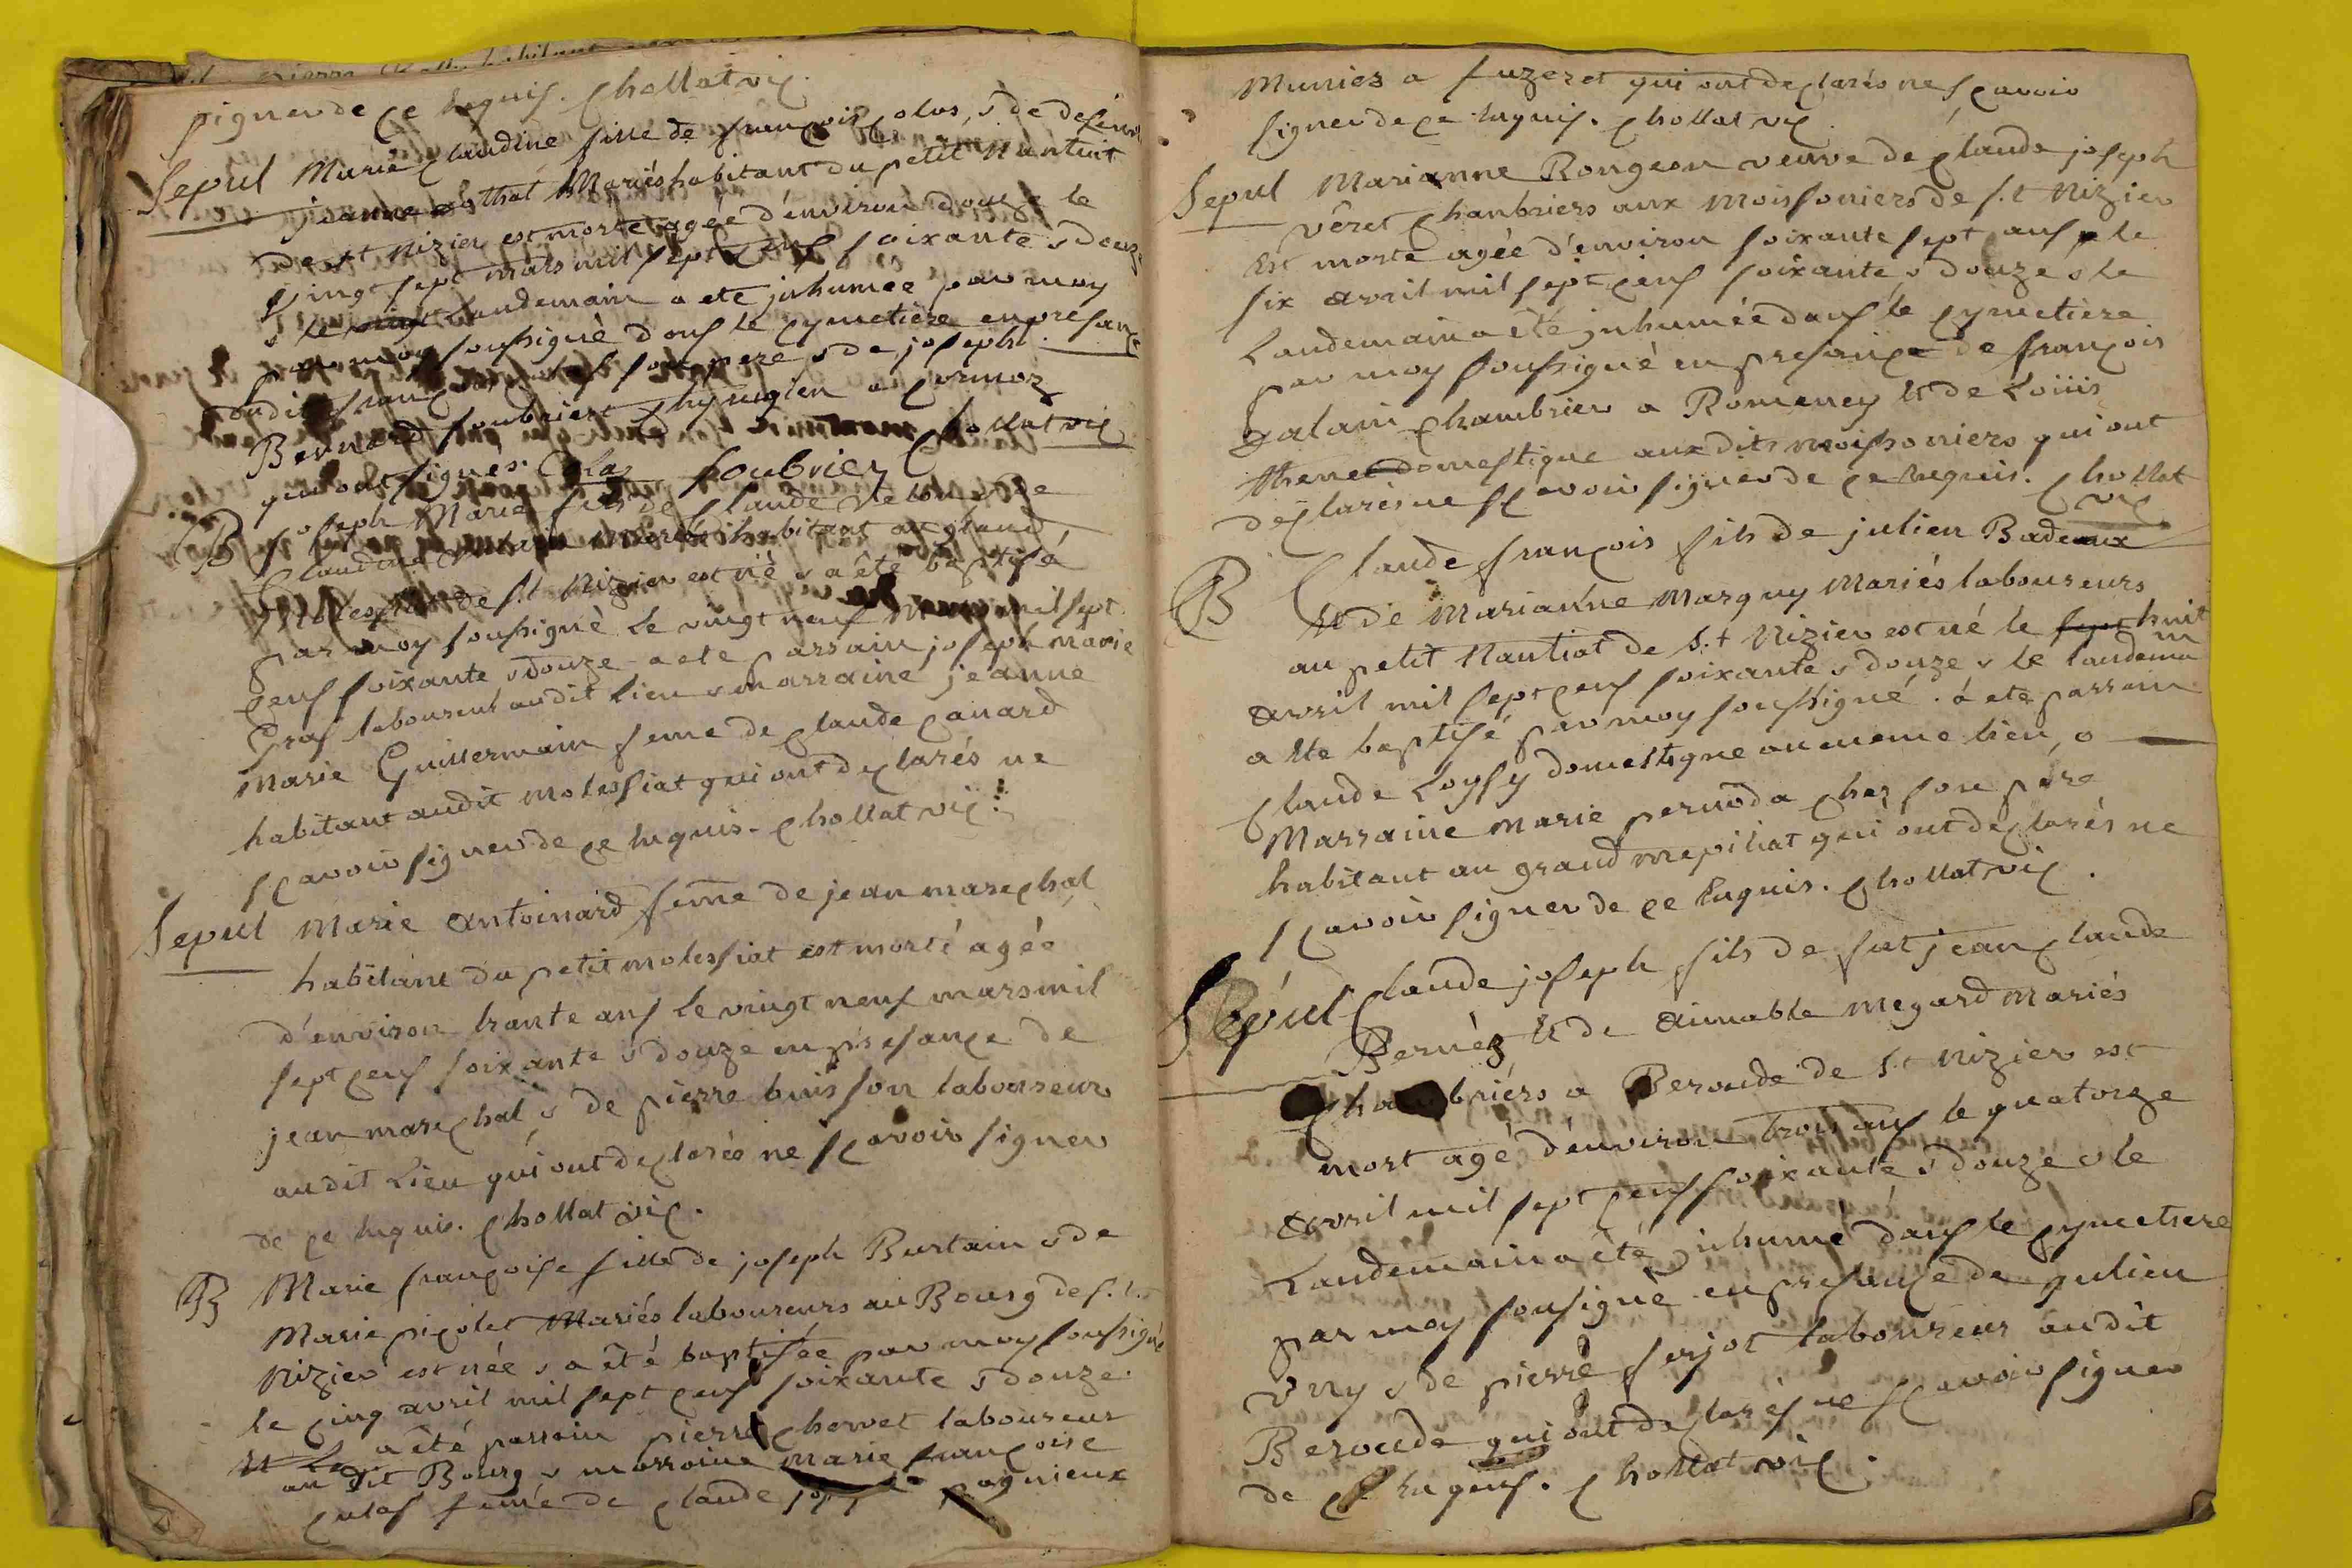 signer de ce Requis. Chollat vic
Sepul Marie Claudine fille de françois Colas, & de defunte
jeanne Mariés habitant du petit Nantuit
de st Nizier est morte agée d'environ douze le
vingt sept mars mil sept cens soixante & douze
& le Landemain a eté inhumée par moy
par moy soussigné dans le cymetiere en presance
dudit françois son pere & de joseph
Bernard soubrier Chyrugien a Cormoz
qui ont signés. Colas Soubrier Chollat vic
B joseph Marie fils de Claude & de
Claudine Mariés habitant au grand
de st Nizier est né & a été baptisé
par moy soussigné le vingt neuf mil sept
cens soixante & douze a eté parrain joseph marie
Gras laboureur audit Lieu & marraine jeanne
marie Guillermain feme de Claude Canard
habitant audit molessiat qui ont declarés ne
sçavoir signer de ce Requis. Chollat vic.
Sepul Marie Antoinard feme de jean marechal
habitant du petit molessiat est morte agée
d'environ trante ans le vingt neuf mars mil
sept cens soixante & douze en presance de
jean marechal & de pierre buisson laboureur
audit Lieu qui ont declarés ne sçavoir signer
de ce Requis. Chollat vic.
B Marie françoise fille de joseph Burtain & de
Marie picolet Mariés laboureurs au Bourg de s.t
Nizier est née & a été baptisée par moy soussigné
le cinq avril mil sept cens soixante & douze.
Et Le a été parrain pierre chervet laboureur
audit Bourg & marraine marie françoise
culas femée de Claude pagnieux
Munier a fuzeret qui ont declarés ne sçavoir
signer de ce Requis. Chollat vic
Sepul Marianne Rongeon veuve de Claude joseph
vêret Chanbriers aux moissoniers de s.t Nizier
Est morte agée d'environ soixante sept ans le
six avril mil sept cens soixante & douze & le
Landemain a été inhumée dans le cymetiere
par moy soussigné en presance de françois
galain Chambrier a Romeney Et de Loüis
thenet domestique auxdits moissoniers qui ont
declarés ne sçavoir signer de ce Requis. Chollat
vic
B Claude françois fils de julien Badeaux
Et de Marianne Marguy Mariés laboureurs
au petit Nantiat de s.t Nizier est né le sept huit
avril mil sept cens soixante & douze & le landemain
a Ete baptisé par moy soussigné. a eté parrain
Claude Loysy domestique au meme lieu, &
Marraine marie pernoda chez son pere
habitant au grand mepiliat qui ont declarés ne
sçavoir signer de ce Requis. Chollat vic.
Sepul Claude joseph fils de fut jean Claude
Bernéz Et de Aimable megard mariés
Chambriérs a Beroude de s.t Nizier est
mort agé d'environ trois ans le quatorze
avril mil sept cens soixante & douze & le
Landemain a été inhumé dans le cymetiere
par moy sousigné en presance de julien
Vny & de pierre ferjot laboureur audit
Beroude qui ont declarés ne sçavoir signer
de ce Requis. Chollat vic.